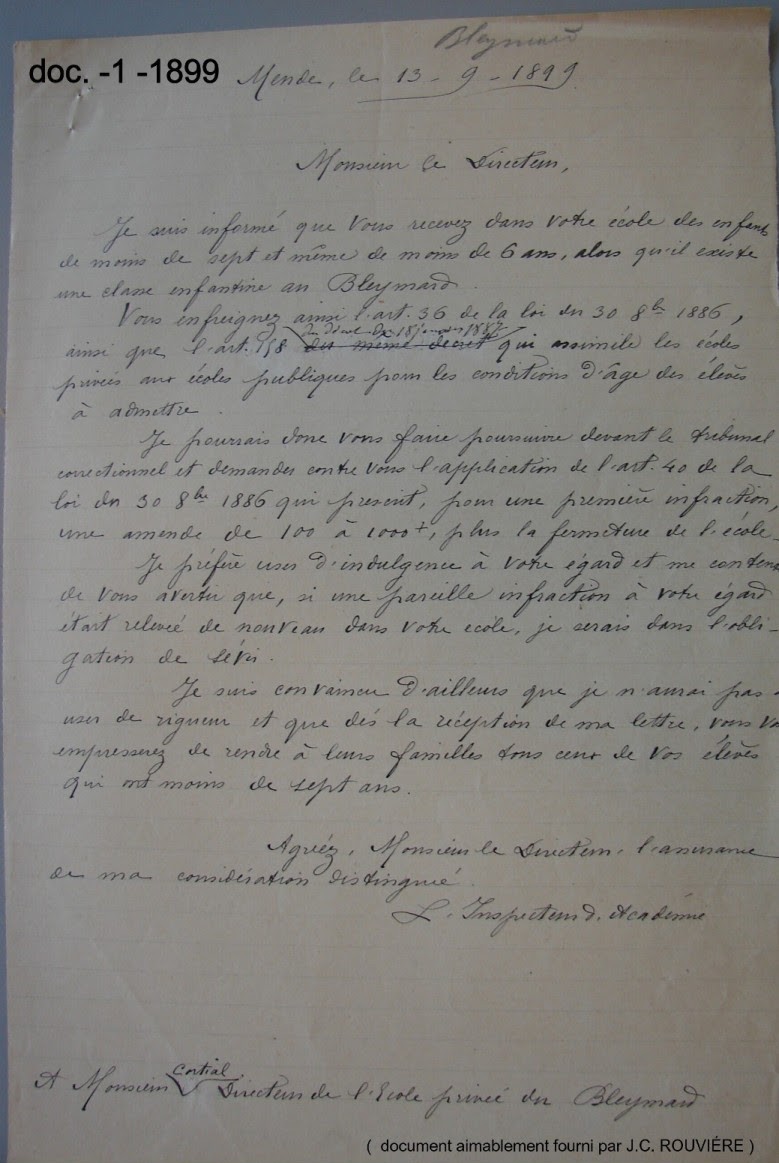 Bleymard
doc. -1 -1899
Mende, le 13 - 9 - 1899
Monsieur le Directeur,
Je suis informé que vous recevez dans votre école des enfants
de moins de sept et même de moins de 6 ans, alors qu'il existe
une classe enfantine au Bleymard.
Vous enfreignez ainsi l'art. 36 de la loi du 30 8bre 1886,
du décret du 18 janvier 1887
ainsi que l'art. 158 du même décret qui assimile les écoles
privées aux écoles publiques pour les conditions d'âge des élèves
à admettre.
Je pourrais donc vous faire poursuivre devant le tribunal
correctionnel et demander contre vous l'application de l'art. 40 de la
loi du 30 8bre 1886 qui prescrit, pour une première infraction,
une amende de 100 à 1000 f, plus la fermeture de l'école.
Je préfère user d'indulgence à votre égard et me conten
de vous avertir que, si une pareille infraction à votre égard
était relevée de nouveau dans votre école, je serais dans l'obli-
gation de sévir.
Je suis convaincu d'ailleurs que je n'aurai pas
user de rigueur et que dès la réception de ma lettre, vous vo
empresserez de rendre à leurs familles tous ceux de vos élèves
qui ont moins de sept ans.
Agréez, Monsieur le Directeur, l'assurance
de ma considération distinguée.
L'Inspecteur d'Académie
Cortial
A Monsieur Directeur de l'Ecole privée du Bleymard
( document aimablement fourni par J.C. ROUVIÉRE )